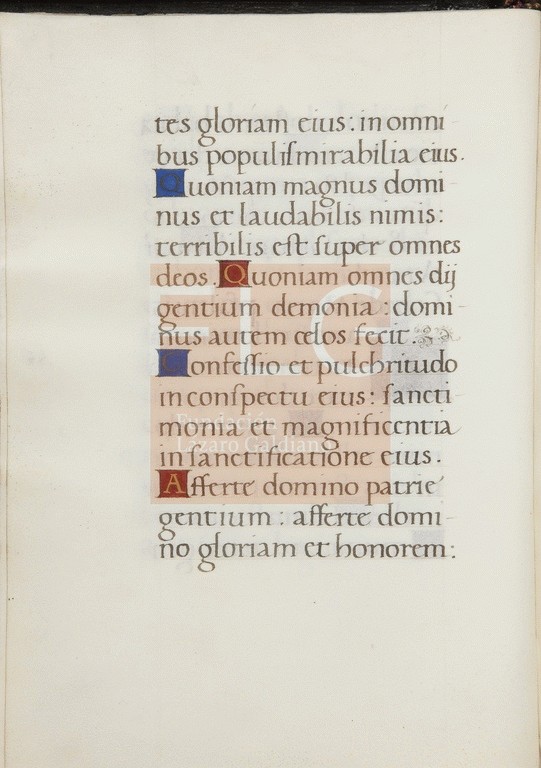 tes gloriam eius: in omni
bus populiſmirabilia eius.
Quoniam magnus domi
nus et laudabilis nimis:
terribilis eſt ſuper omnes
deos. Quoniam omnes dij
gentium demonia: domi-
nus autem celos fecit.
Confeſſio et pulchritudo
in conſpectu eius: ſancti
monia et magnificentia
in ſanctificatione eius.
Afferte domino patrie
gentium: afferte domi-
no gloriam et honorem:
FLG
Fundación
Lázaro Galdiano